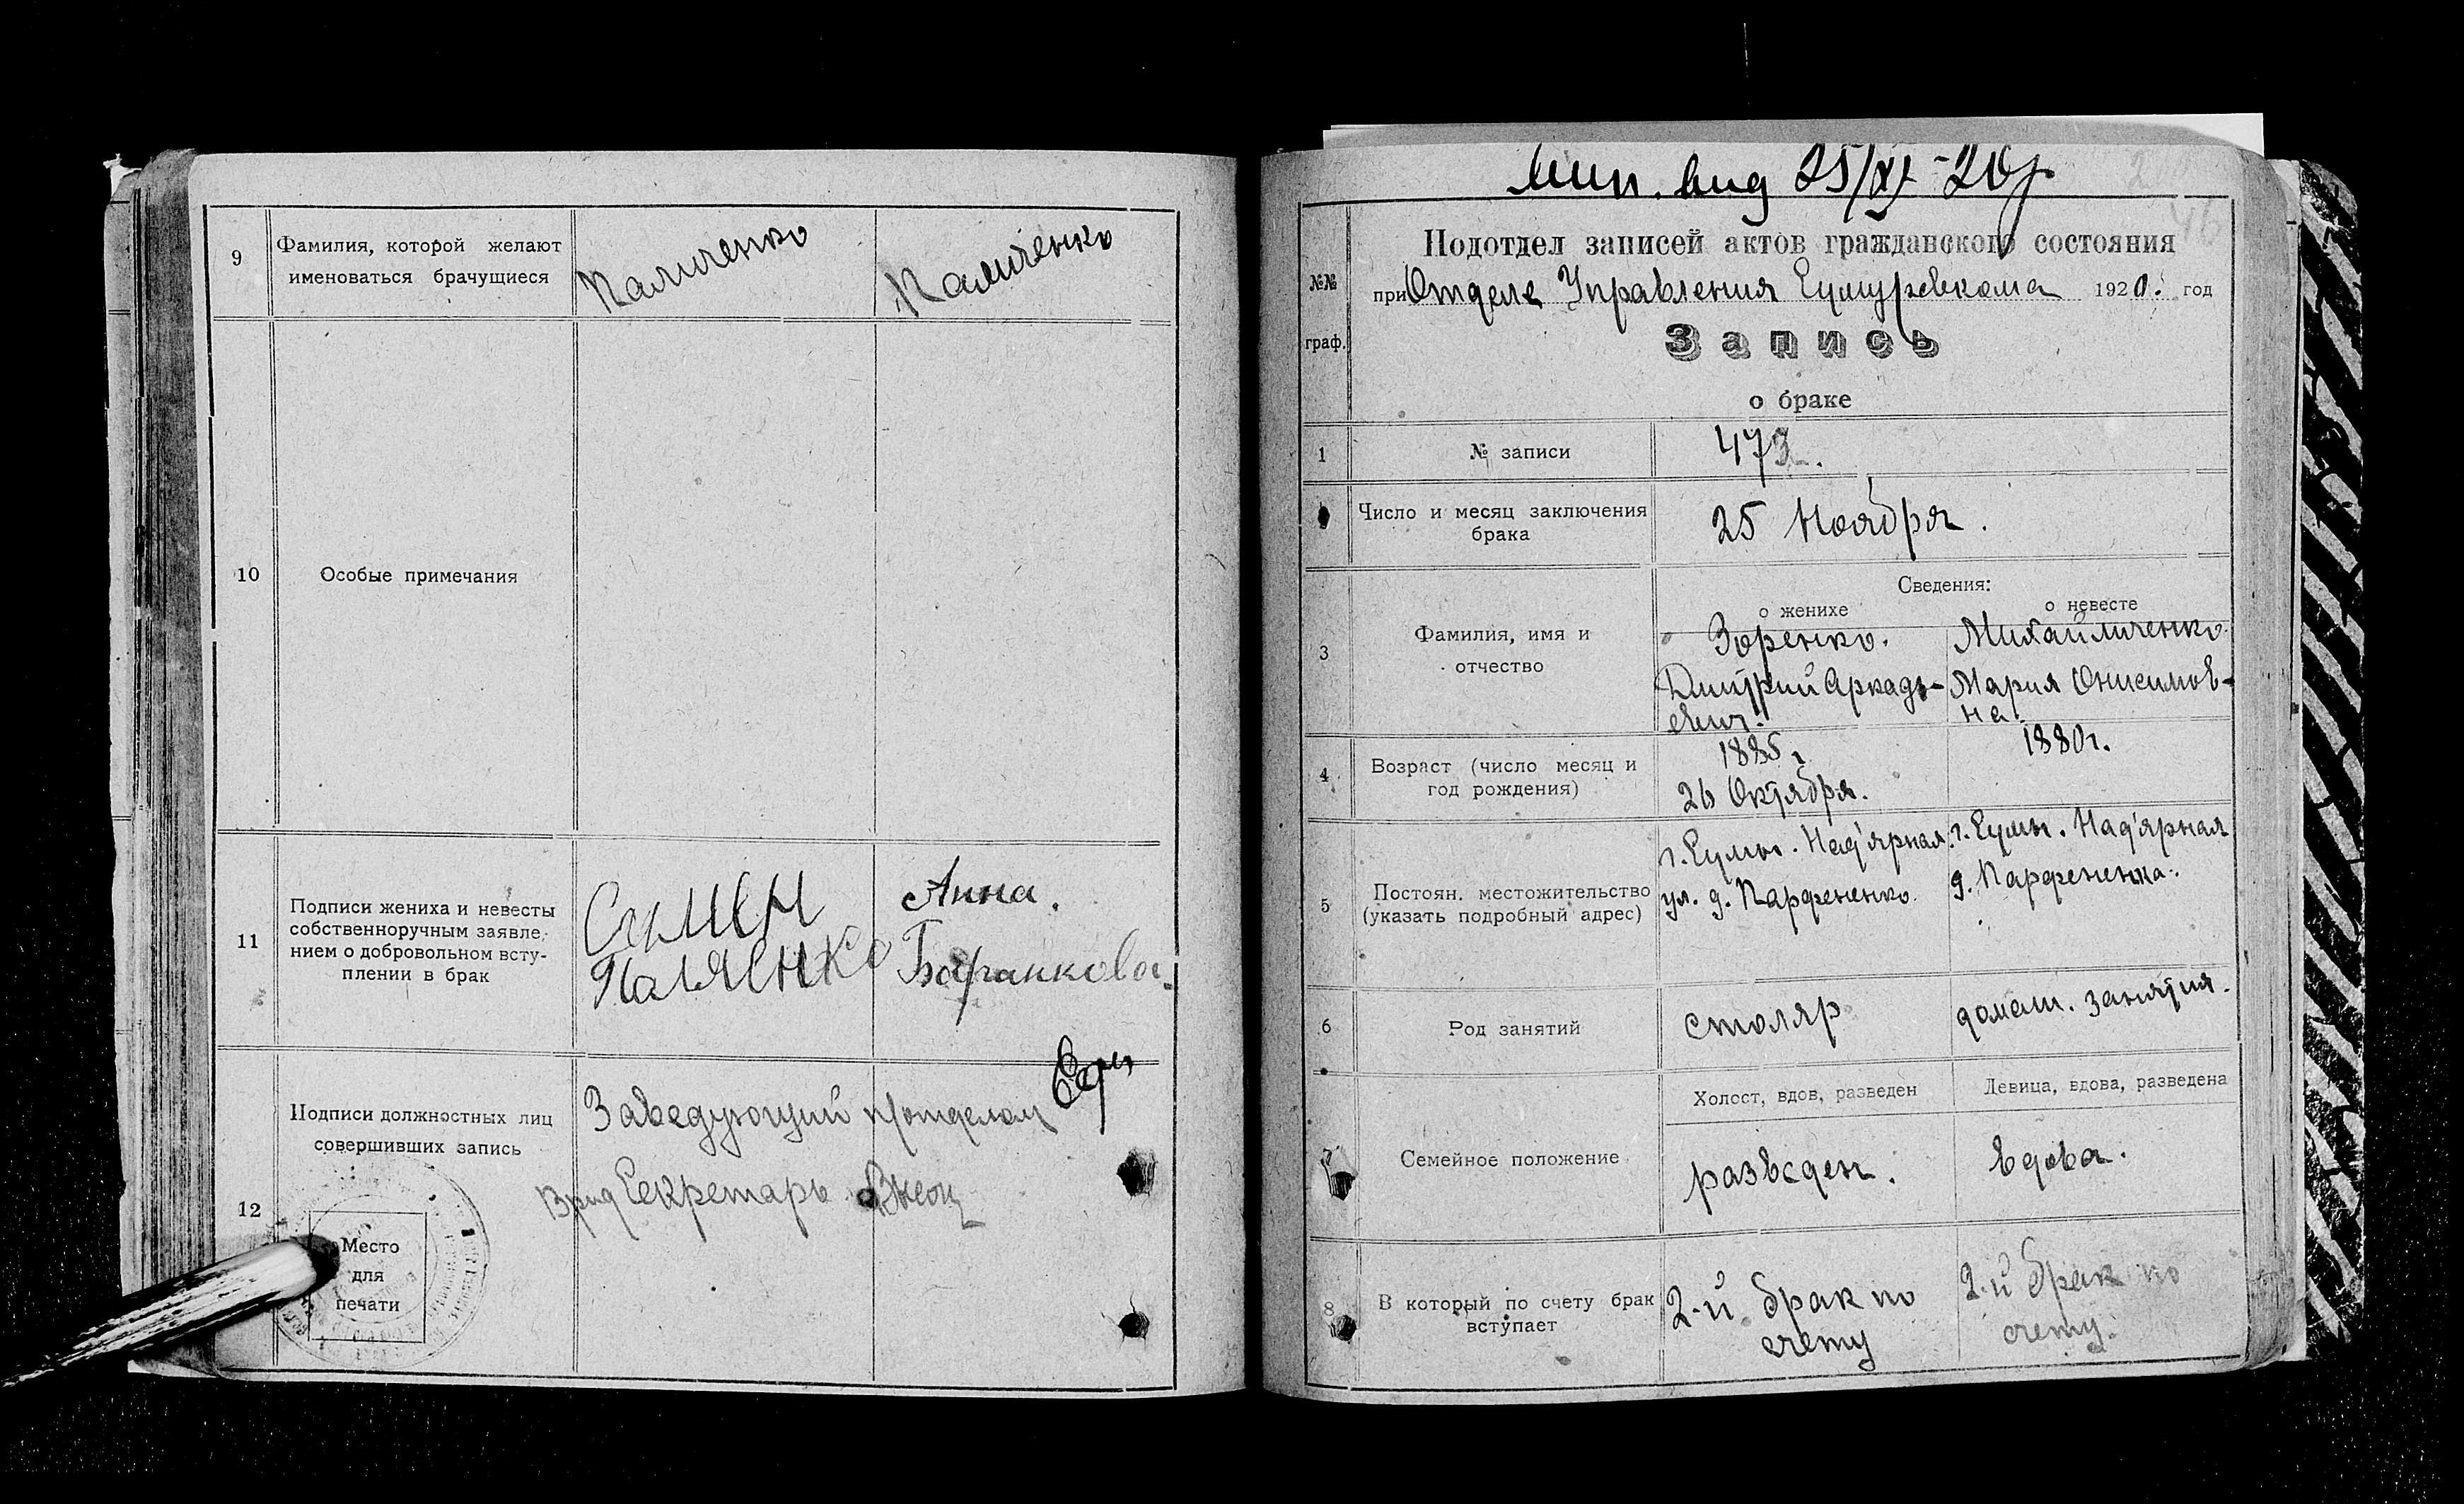 9
Фамилия, которой желают
именоваться брачущиеся
Паличенко
Паличенко
10
Особые примечания
11
Подписи жениха и невесты
собственноручным заявле-
нием о добровольном всту-
плении в брак
Семен
Анна.
Баранкова.
12
Подписи должностных лиц
совершивших запись
Заведующий п/отделом
Врид Секретарь
Место
для
печати
вид 25/XI-20г
№№
граф.
Подотдел записей актов гражданского состояния
при Отделе Управления Сумуревкома 1920. год
Запись
о браке
1
№ записи
473.
Число и месяц заключения
брака
25 Ноября.
3
Фамилия, имя и
отчество
Сведения:
о женихе
о невесте
Зоренко.
Дмитрий Аркадь-
евич.
Михайличенко
Мария Онисимов-
на
4
Возраст (число месяц и
год рождения)
1885 г.
26 Октября.
1880 г.
5
Постоян. местожительство
(указать подробный адрес)
г. Сумы. Над'ярная.
ул. д. Парфененко.
г. Сумы. Над'ярная
д. Парфененка.
6
Род занятий
столяр
домаш. занятия.
7
Семейное положение
Холост, вдов, разведен
Девица, вдова, разведена
разведен.
вдова.
8
В который по счету брак
вступает
2-й брак по
счету
2-й брак по
счету.